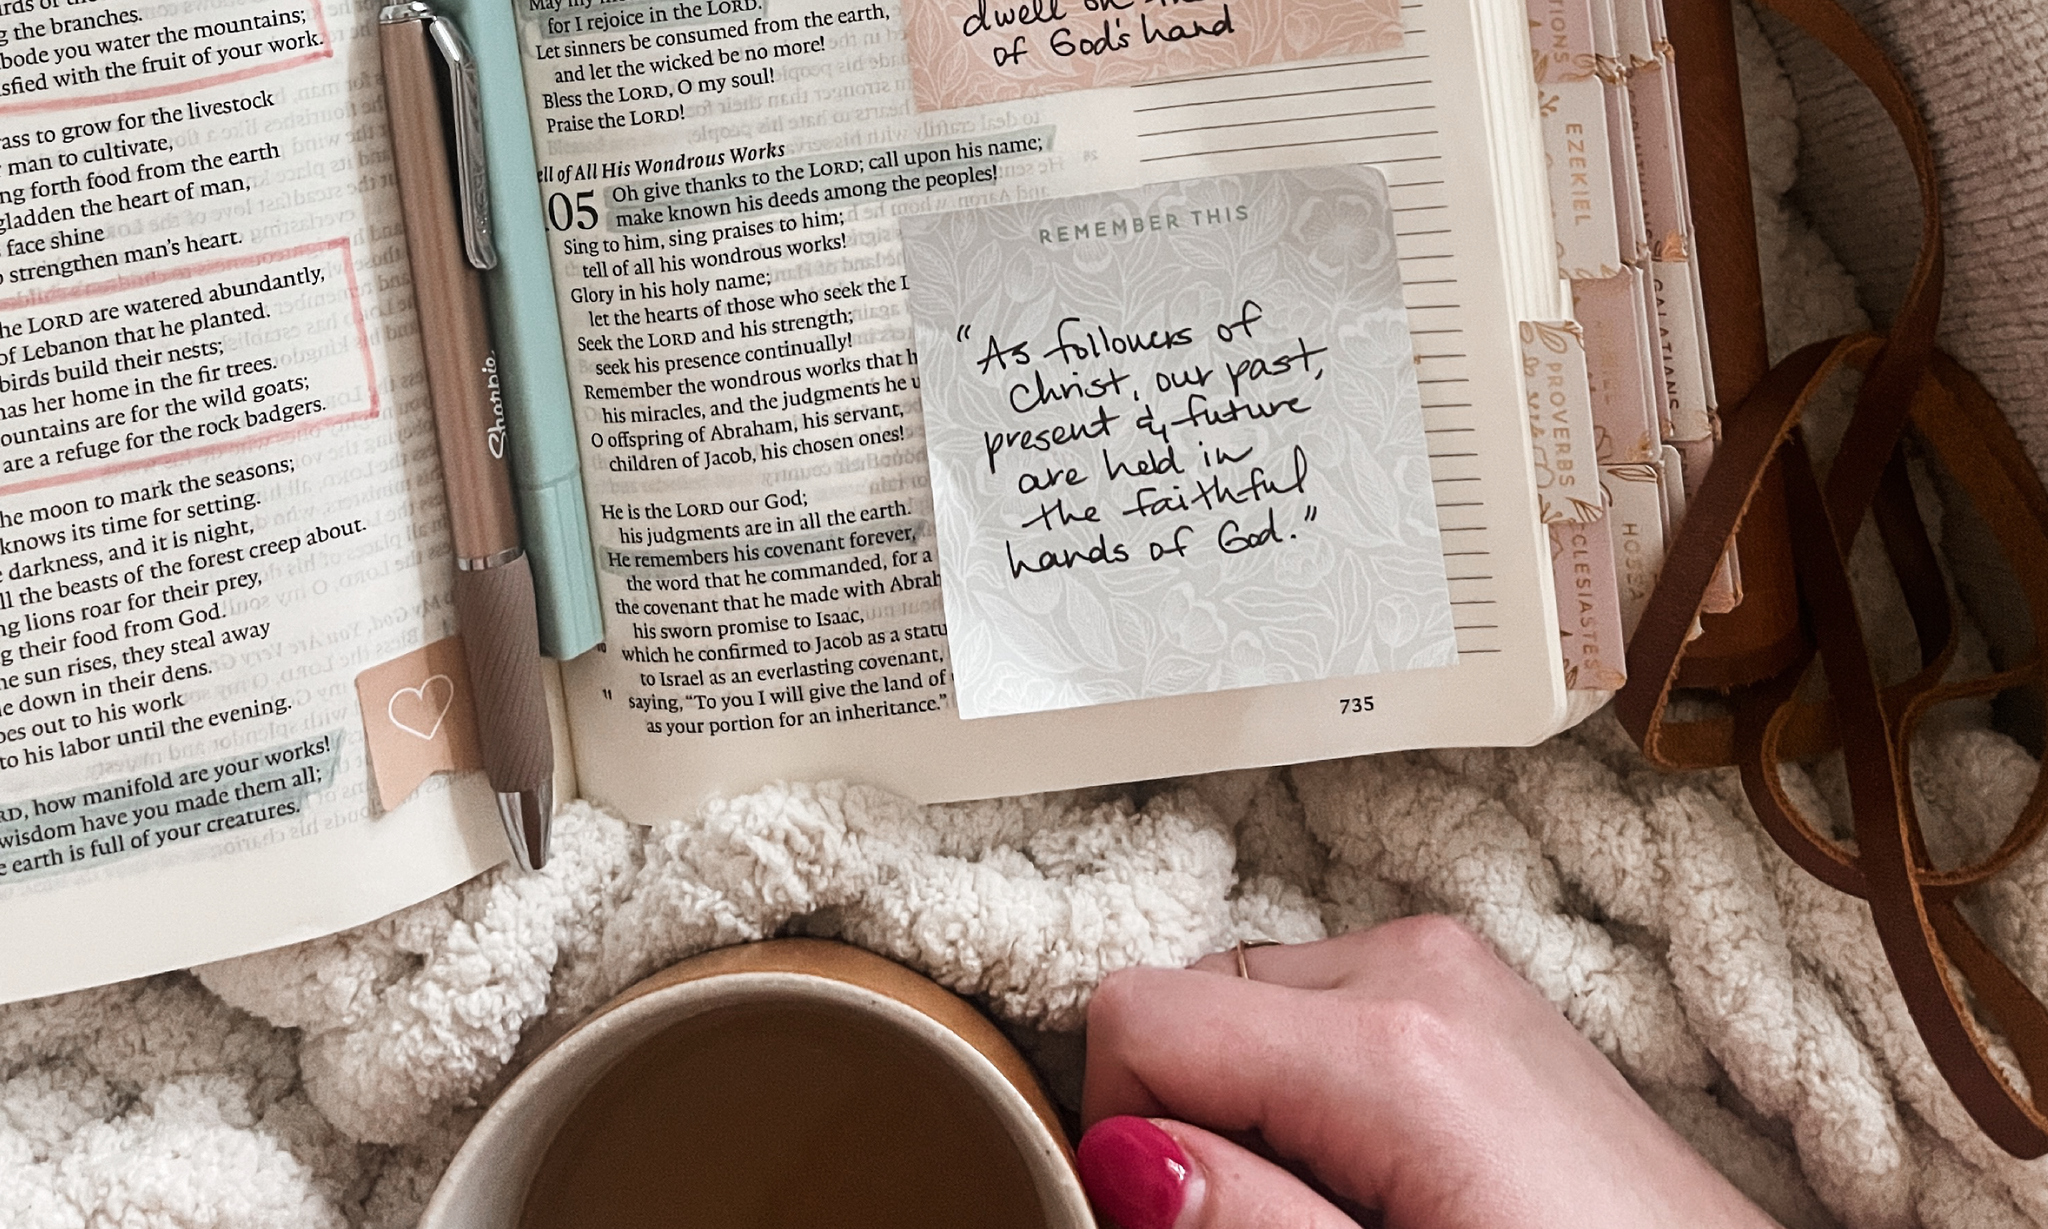 g the branches.
bode you water the mountains;
sfied with the fruit of your work.
ass to grow for the livestock
man to cultivate,
ng forth food from the earth
gladden the heart of man,
face shine
strengthen man's heart.
he LORD are watered abundantly,
of Lebanon that he planted.
birds build their nests;
has her home in the fir trees.
ountains are for the wild goats;
are a refuge for the rock badgers.
he moon to mark the seasons;
knows its time for setting.
darkness, and it is night,
ll the beasts of the forest creep about.
ng lions roar for their prey,
g their food from God.
he sun rises, they steal away
e down in their dens.
oes out to his work
to his labor until the evening.
RD, how manifold are your works!
wisdom have you made them all;
e earth is full of your creatures.
Sharpie
for I rejoice in the LORD.
Let sinners be consumed from the earth,
and let the wicked be no more!
Bless the LORD, O my soul!
Praise the LORD!
ell of All His Wondrous Works
05 Oh give thanks to the LORD; call upon his name;
make known his deeds among the peoples!
Sing to him, sing praises to him;
tell of all his wondrous works!
Glory in his holy name;
let the hearts of those who seek the L
Seek the LORD and his strength;
seek his presence continually!
Remember the wondrous works that h
his miracles, and the judgments he u
O offspring of Abraham, his servant,
children of Jacob, his chosen ones!
He is the LORD our God;
his judgments are in all the earth.
He remembers his covenant forever,
the word that he commanded, for a
the covenant that he made with Abrah
his sworn promise to Isaac,
10 which he confirmed to Jacob as a statu
to Israel as an everlasting covenant,
11 saying, "To you I will give the land of
as your portion for an inheritance."
dwell on
of God's hand
REMEMBER THIS
"As followers of
Christ, our past,
present & future
are held in
the faithful
hands of God."
735
EZEKIEL
PROVERBS
ECCLESIASTES
HOSEA
GALATIANS